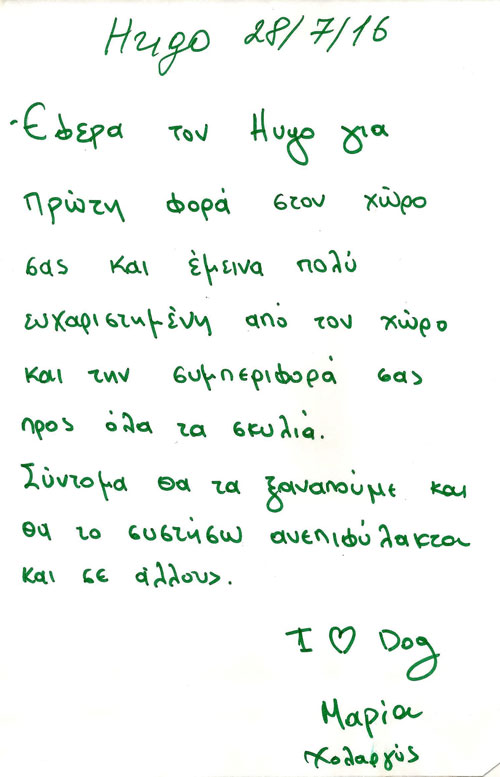 Hugo 28/7/16
Έφερα τον Hugo για
πρώτη φορά στον χώρο
σας και έμεινα πολύ
ευχαριστημένη από τον χώρο
και την συμπεριφορά σας
προς όλα τα σκυλιά.
Σύντομα θα τα ξαναπούμε και
θα το συστήσω ανεπιφύλακτα
και σε άλλους.
I ♡ Dog
Μαρία
Χολαργός